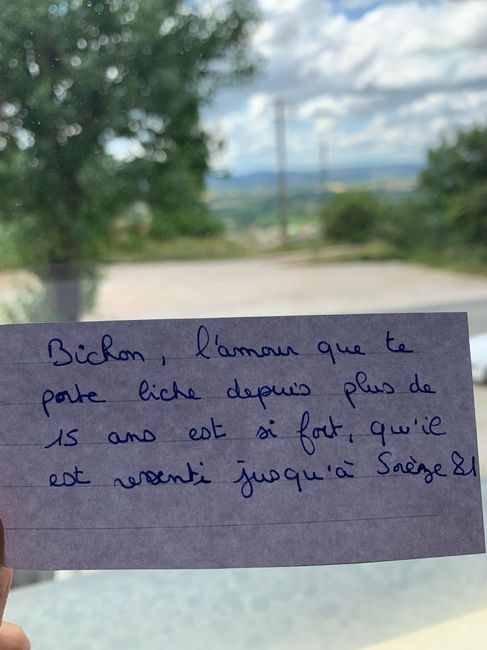 Bichon, l'amour que te
porte liche depuis plus de
15 ans est si fort, qu'il
est ressenti jusqu'à Sorèze 81